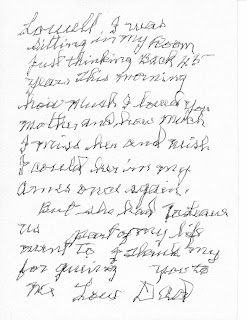 Lowell, I was
sitting in my Room
Just thinking Back 45
years this morning
how much I loved your
Mother, and how much
I miss her and wish
I could her in my
Arms once again.
But she had to leave
us part of my life
went to. I thank my
for giving you to
me Love Dad